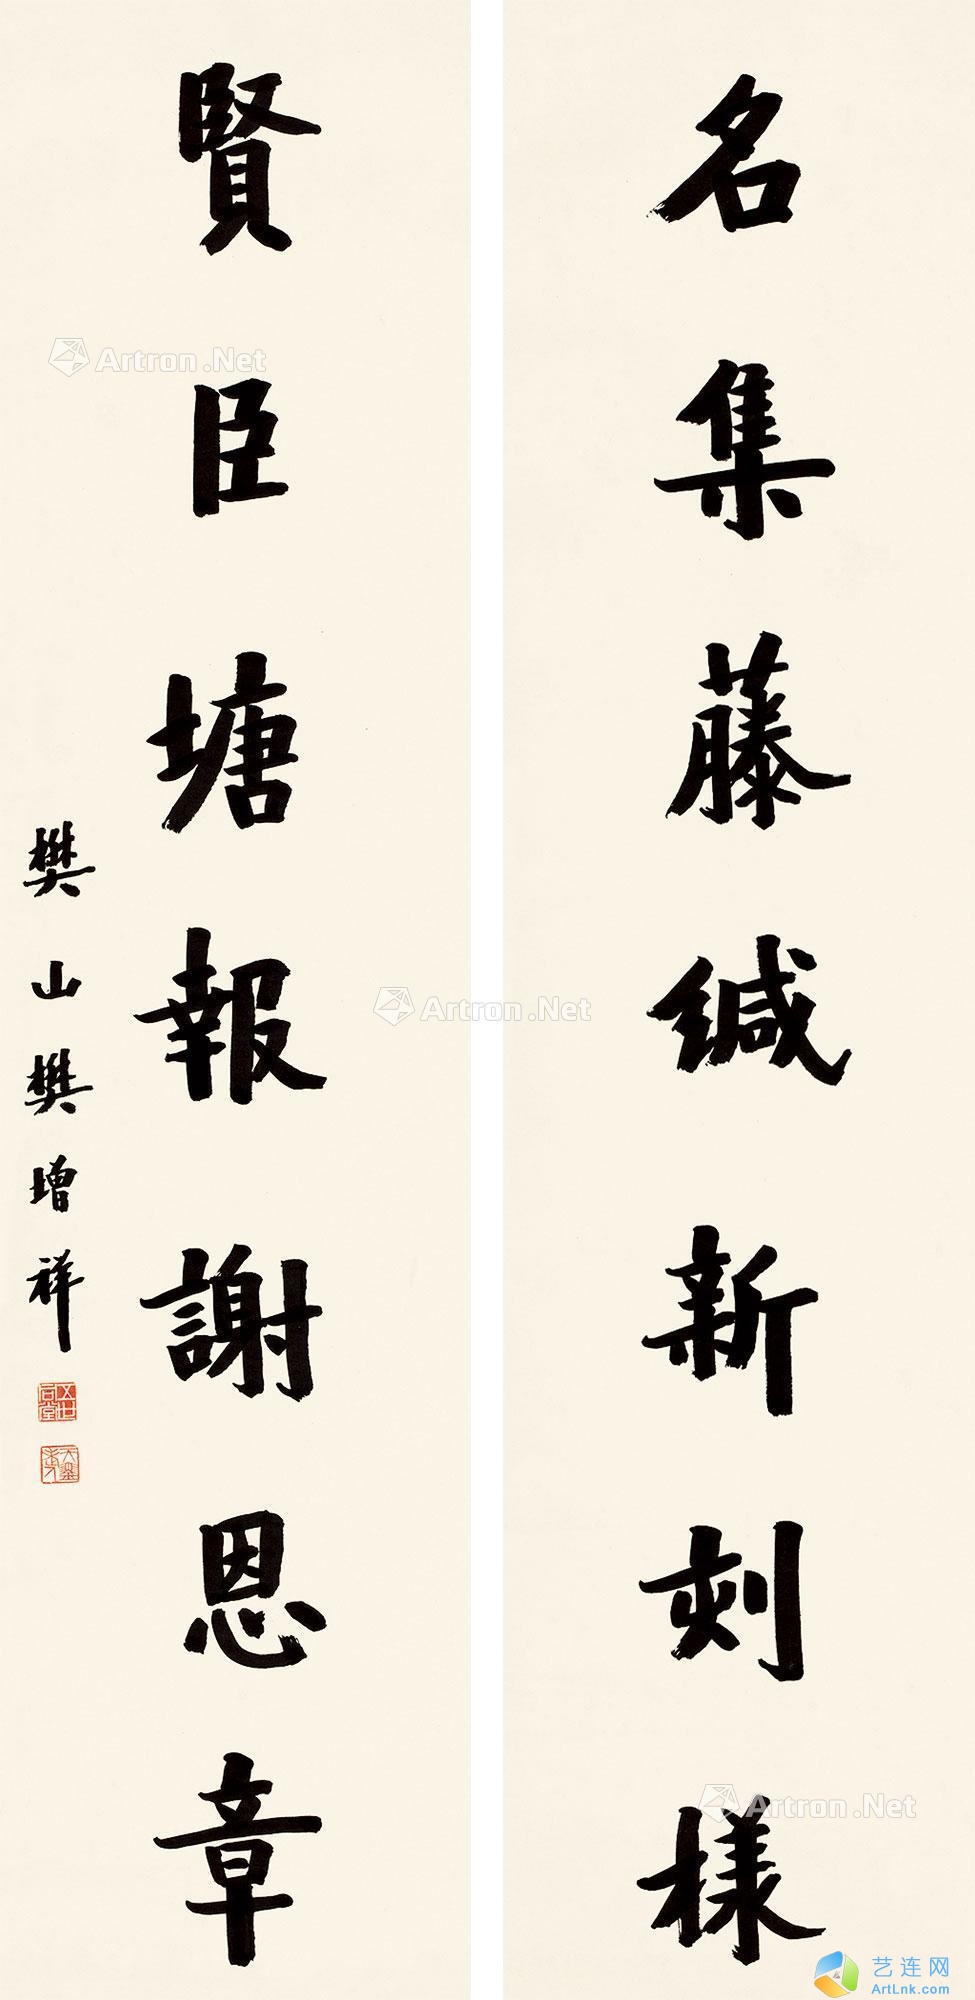 名集藤缄新刻樣
賢臣塘報謝恩章
樊山樊增祥
五世同堂
Artron.Net
Artron.Net
Artron.Net
艺连网
ArtLnk.com